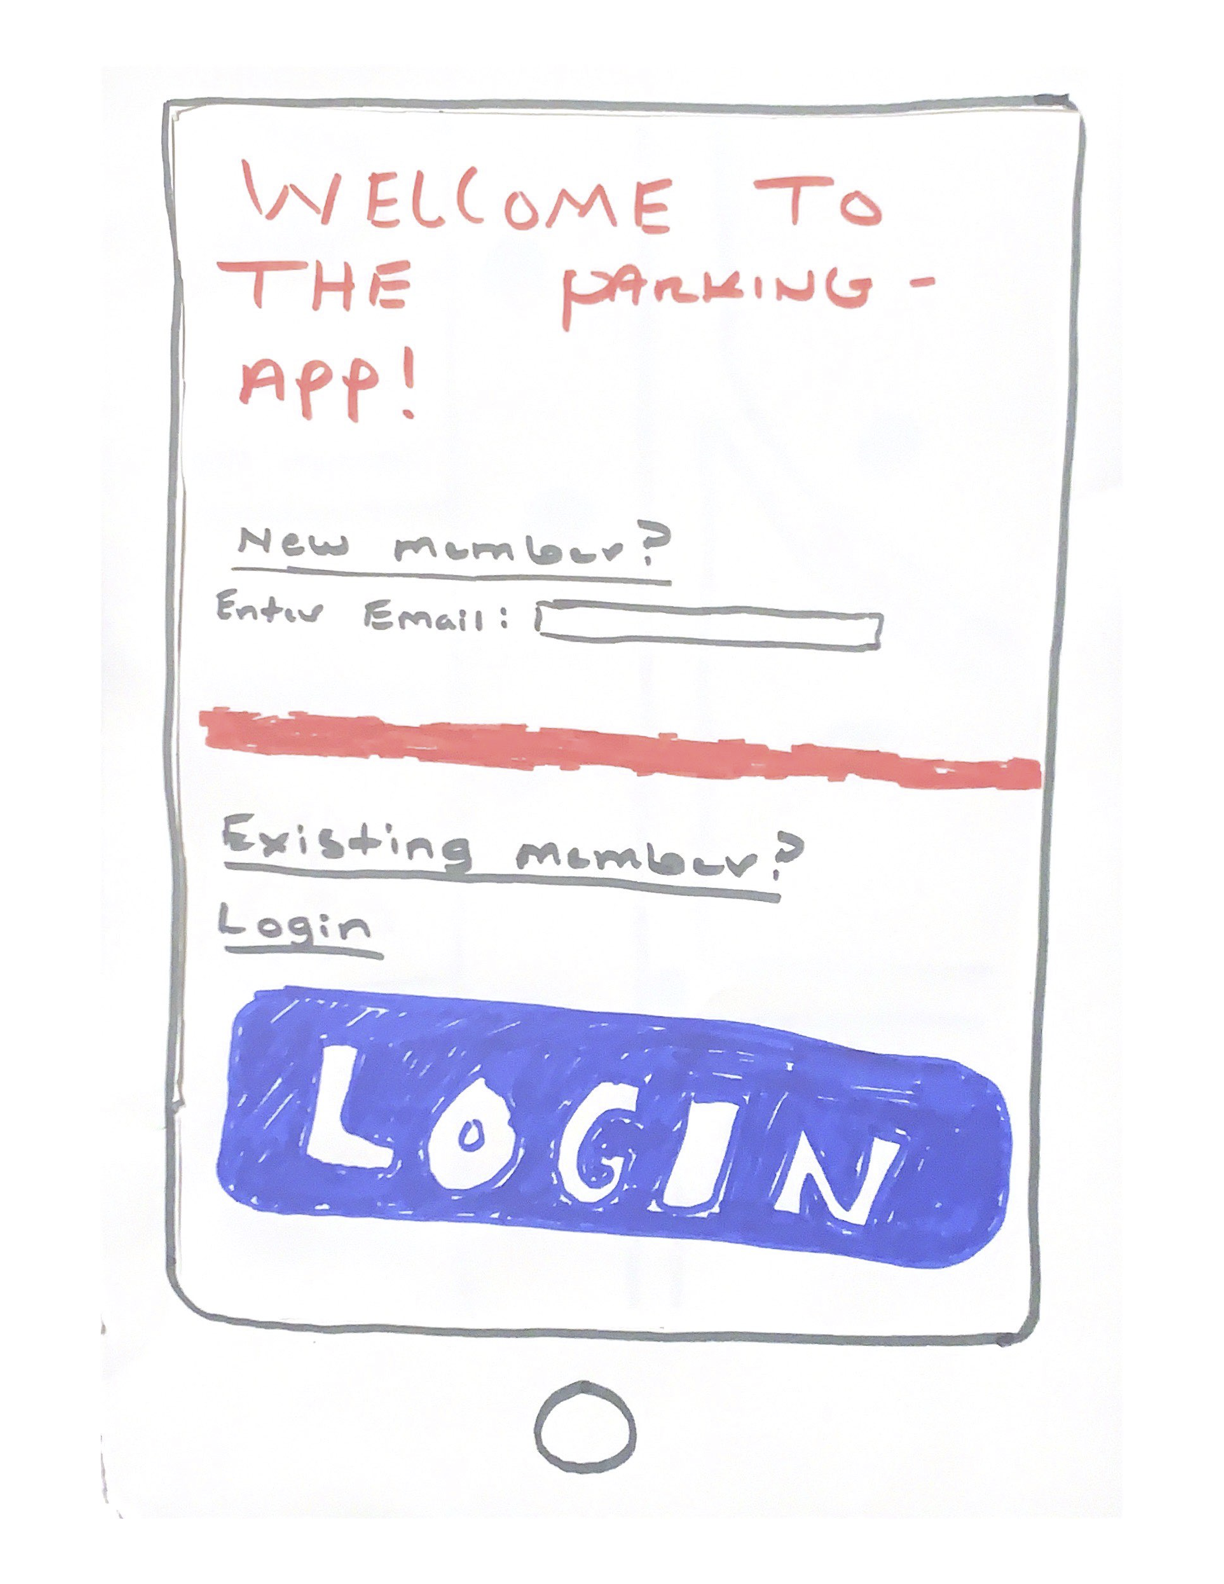 WELCOME TO
THE PARKING-
APP!
New member?
Enter Email:
Existing member?
Login
LOGIN